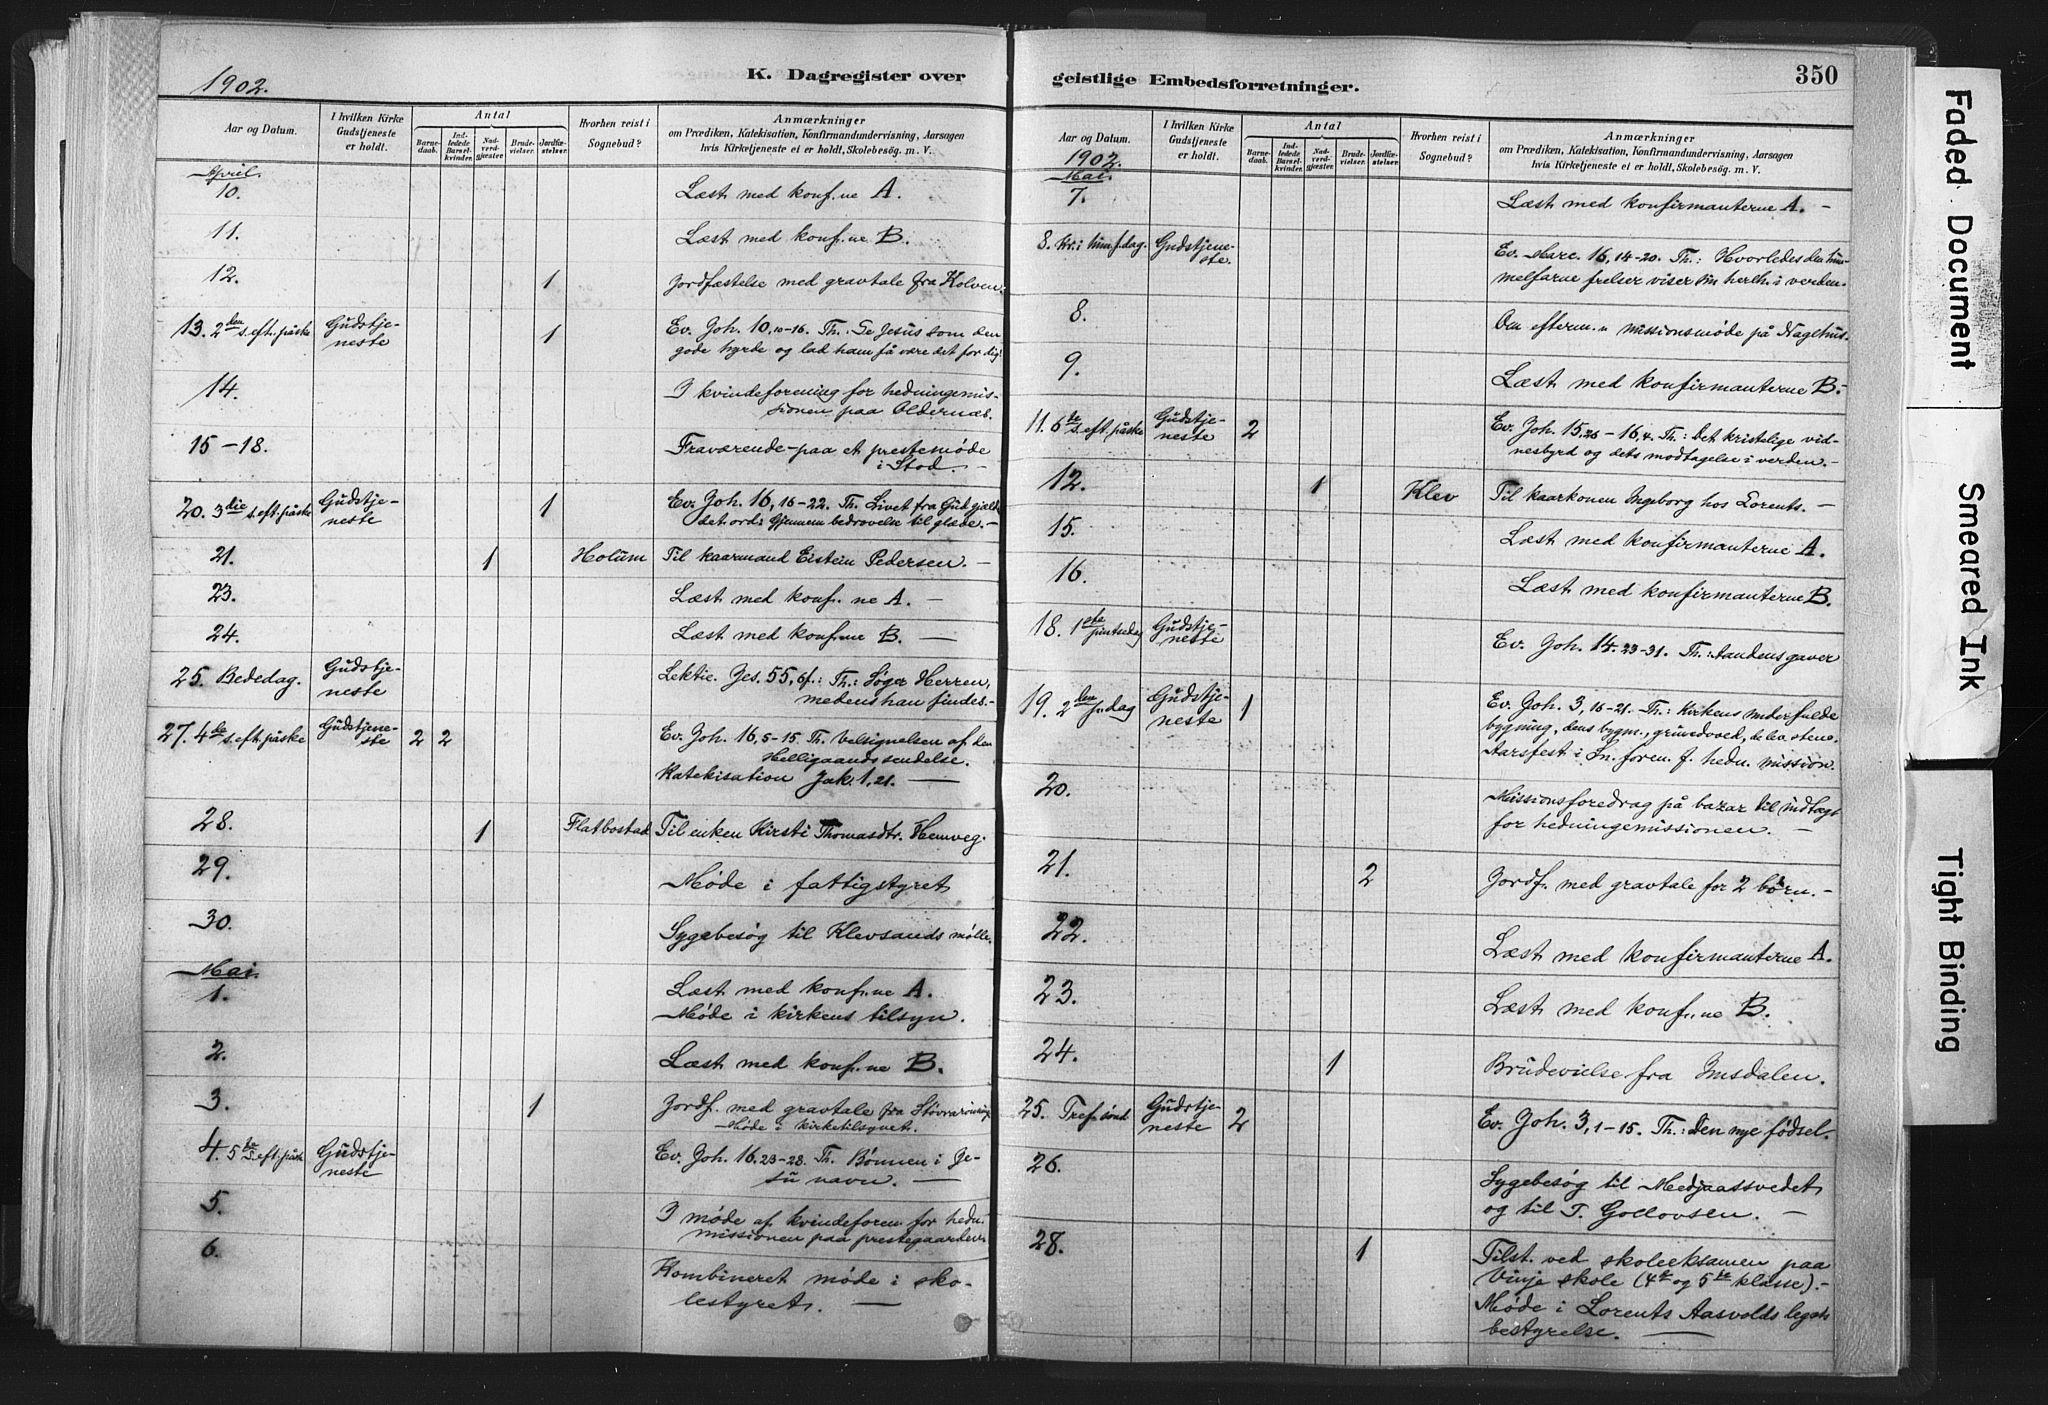 1902.
K. Dagregister over
Aar og Datum.
I hvilken Kirke Gudstjeneste er holdt.
Antal
Barnedaab.
Indledede Barselkvinder.
Nadverdgjæster
Brudevielser.
Jordfæstelser.
Hvorhen reist i Sognebud?
Anmærkninger
om Prædiken, Katekisation, Konfirmandundervisning, Aarsagen
hvis Kirketjeneste ei er holdt, Skolebesøg. m. V.
April.
10. Læst med konf.ne A.
11. Læst med konf.ne B.
12. 1 Jordfæstelse med gravtale fra Kolven.
13. 2den s. eft. påske Gudstjeneste 1 Ev. Joh. 10, 10-16. Th. Se Jesus som den
gode hyrde og lad ham få være det for dig!
14. I kvindeforening for hedningemis-
sionen paa Oldernæs.
15-18. Fraværende paa et prestemøde
i Stod. —
20. 3die s. eft. påske Gudstjeneste 1 Ev. Joh. 16, 16-22. Th. Livet fra Gud gjælde
det ord: Gjennem bedrøvelse til glæde. —
21. 1 Holum Til kaarmand Eistein Pedersen. —
23. Læst med konf. ne A. —
24. Læst med konf.ne B. —
25. Bededag. Gudstjeneste Lektie. Jes. 55, 6f.: Th.: Søger Herren,
medens han findes. —
27. 4de s. eft. påske Gudstjeneste 2 2 Ev. Joh. 16, 5-15 Th. Velsignelsen af den
Helligaands sendelse.
Katekisation Jak. 1, 21. —
28. 1 Flatbostad Til enken Kirsti Thomasdtr. Hemveg.
29. Møde i fattigstyret
30. Sygebesøg til Klevsands mølle.
Mai.
1. Læst med konf.ne A.
Møde i kirkens tilsyn.
2. Læst med konf.ne B.
3. 1 Jordf. med gravtale fra
Møde i kirketilsynet.
4. 5te s. eft. påske Gudstjeneste Ev. Joh. 16, 23-28. Th. Bønnen i Je-
su navn. —
5. I møde af kvindeforen. for hedn.
missionen paa prestegaarden.
6. Kombineret møde i sko-
lestyret. —
geistlige Embedsforretninger.
350
Aar og Datum.
I hvilken Kirke Gudstjeneste er holdt.
Antal
Barnedaab.
Indledede Barselkvinder.
Nadverdgjæster.
Brudevielser
Jordfæstelser.
Hvorhen reist i Sognebud?
Anmærkninger
om Prædiken, Katekisation, Konfirmandundervisning, Aarsagen
hvis Kirketjeneste ei er holdt, Skolebesøg. m. V.
1902.
Mai.
7. Læst med konfirmanterne A. —
8. Kr. i him.f.dag. Gudstjeneste. Ev. Marc. 16, 14-20. Th.: Hvorledes den him-
melfarne frelser viser sin herlh. i verden.
8. Om efterm. missionsmøde på
9. Læst med konfirmanterne B. —
11. 6te s. eft. påske Gudstjeneste 2 Ev. Joh. 15, 26 - 16, 4. Th.: Det kristelige vid-
nesbyrd og dets modtagelse i verden. —
12. 1 Klev Til kaarkonen Ingeborg hos Lorents. —
15. Læst med konfirmanterne A.
16. Læst med konfirmanterne B.
18. 1ste pintsedag Gudstjeneste Ev. Joh. 14. 23-31. Th.: Aandens gaver
19. 2den p. dag Gudstjeneste 1 Ev. Joh. 3, 16-21. Th.: Kirkens underfulde
bygning, dens bygm., grundvold, de lev. stene.
Aarsfest i foren. f. hedn. mission.
20. Missionsforedrag på bazar til indtægt
for hedningemissionen. —
21. 2 Jordf. med gravtale for 2 børn. —
22. Læst med konfirmanterne A.
23. Læst med konf.ne B.
24. 1 Brudevielse fra Imsdalen.
25. Tref. sönd Gudstjeneste 2 Ev. Joh. 3, 1-15. Th.: Den nye fødsel.
26. Sygebesøg til
og til T. —
28. 1 Tilst. ved skoleeksamen paa
Vinje skole (4de og 5te klasse). —
Møde i Lorents Aasvolds legat-
bestyrelse. —
Faded Document
Smeared Ink
Tight Binding